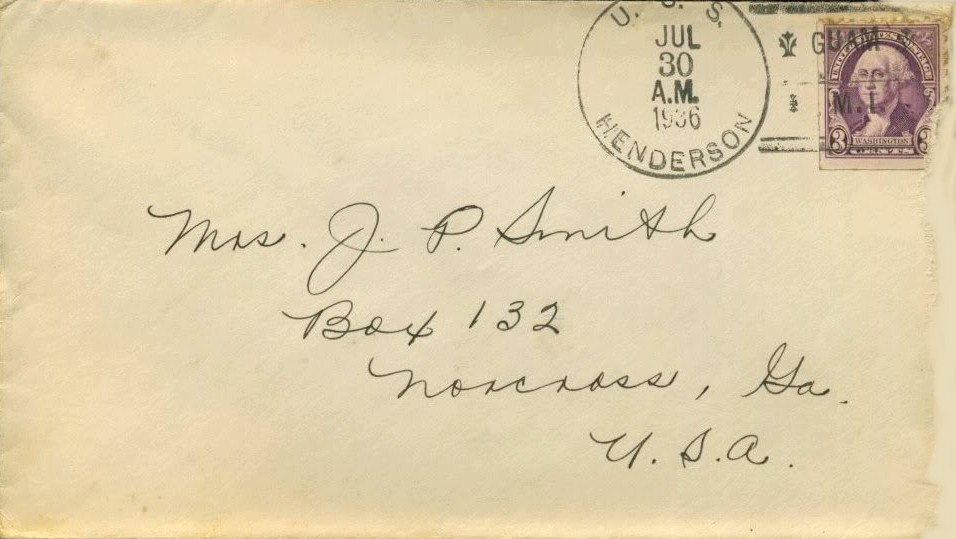 U. S. S.
JUL
30
A.M.
1936
HENDERSON
GUAM
M.I.
UNITED STATES POSTAGE
3 WASHINGTON 3
Mrs. J. P. Smith
Box 132
Norcross, Ga.
U. S. A.